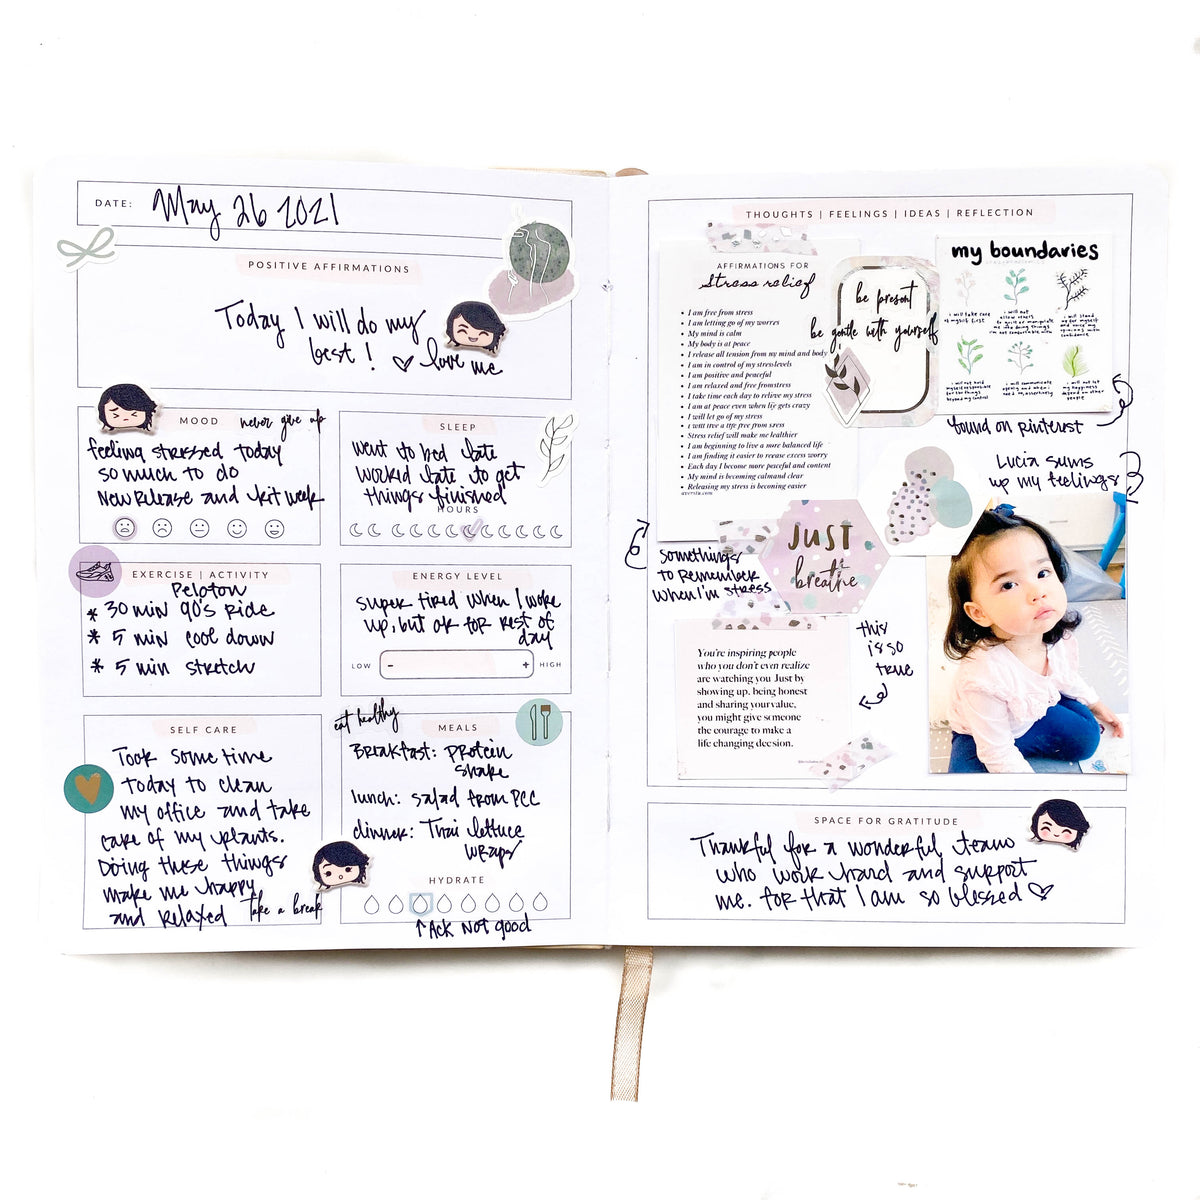 DATE: May 26 2021
POSITIVE AFFIRMATIONS
Today I will do my
best! love me
MOOD never give up
feeling stressed today
so much to do
New Release and kit week
SLEEP
went to bed late
worked late to get
things finished
HOURS
EXERCISE | ACTIVITY
Peloton
* 30 min 90's ride
* 5 min cool down
* 5 min stretch
ENERGY LEVEL
super tired when I woke
up, but ok for rest of
day
LOW - + HIGH
SELF CARE
Took some time
today to clean
my office and take
care of my plants.
Doing these things
make me happy
and relaxed Take a break
eat healthy
MEALS
Breakfast: protein
shake
lunch: salad from PCC
dinner: Thai lettuce
wraps
HYDRATE
↑Ack Not good
THOUGHTS | FEELINGS | IDEAS | REFLECTION
AFFIRMATIONS FOR
stress relief
• I am free from stress
• I am letting go of my worres
• My mind is calm
• My body is at peace
• I release all tension from my mind and body
• I am in control of my stress levels
• I am positive and peaceful
• I am relaxed and free from stress
• I take time each day to relive my stress
• I am at peace even when life gets crazy
• I will let go of my stress
• I will live a life free from sress
• Stress relief will make me healthier
• I am beginning to live a more balanced life
• I am finding it easier to rerease excess worry
• Each day I become more peaceful and content
• My mind is becoming calm and clear
• Releasing my stress is becoming easier
be present
be gentle with yourself
my boundaries
i will take care
of myself first
i will not
allow others
to guilt or manipulate
me into doing things
i'm not comfortable with
i will stand
up for myself
and voice my
opinions with
confidence
i will not hold
myself responsible
for the things
beyond my control
i will communicate
openly and when i
need to, assertively
i will not let
my happiness
depend on other
people
found on pinterest
Lucia sums
up my feelings
somethings
to remember
when I'm stress
JUST
breathe
You're inspiring people
who you don't even realize
are watching you Just by
showing up, being honest
and sharing your value,
you might give someone
the courage to make a
life changing decsion.
this
is so
true
SPACE FOR GRATITUDE
Thankful for a wonderful team
who work hard and support
me. for that I am so blessed